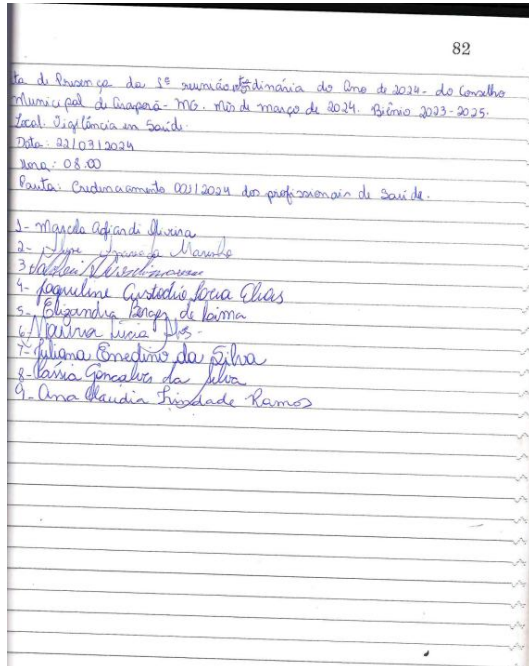 82
ta de Presença da 1ª reunião ordinária do Ano de 2024 - do Conselho
Municipal de Araporã - MG. mês de março de 2024. Biênio 2023-2025.
Local: Vigilância em Saúde.
Data: 22/03/2024
Hora: 08:00
Pauta: Credenciamento 001/2024 dos profissionais de Saúde.
1- Oliveira
2- Aparecida Marinho
3
4- Jaqueline Custódio Elias
5- Elizandra Borges de Lima
6- Lúcia
7- Juliana Enedino da Silva
8- Cássia Gonçalves da Silva
9- Ana Claudia Trindade Ramos